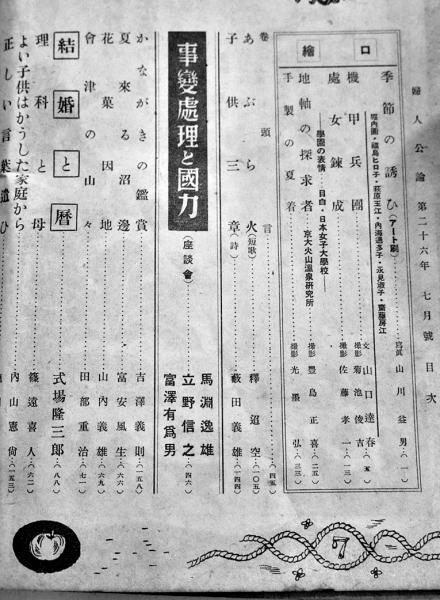 婦人公論 第二十六年 七月號 目次
口繪
季節の誘ひ(アート刷)……寫眞 山川益男…(一)
堀内園・福島ヒロ子・萩原玉江・内海通多子・永見淑子・齋藤房江
機甲兵團……文 山口達春…(五)
撮影 菊池俊吉
處女錬成……撮影 佐藤孝一…(一三)
―學園の表情……目白・日本女子大學校―
地軸の探求者……撮影 豊島正喜…(二五)
京大火山温泉研究所
手製の夏着……撮影 光墨弘…(三三)
卷頭言……(四五)
あぶら火(短歌)……釋迢空…(一〇五)
子供三章(詩)……藪田義雄…(一四四)
事變處理と國力(座談會)
馬淵逸雄
立野信之…(四六)
富澤有爲男
かながきの鑑賞……吉澤義則…(一五八)
夏來る沼邊……富安風生…(六六)
花菓因地……山内義雄…(六九)
會津の山々……田部重治…(七二)
結婚と暦……式場隆三郎…(八八)
理科と母……篠遠喜人…(六二)
よい子供はかうした家庭から……内山憲尚…(一五三)
正しい言葉遣ひ
7